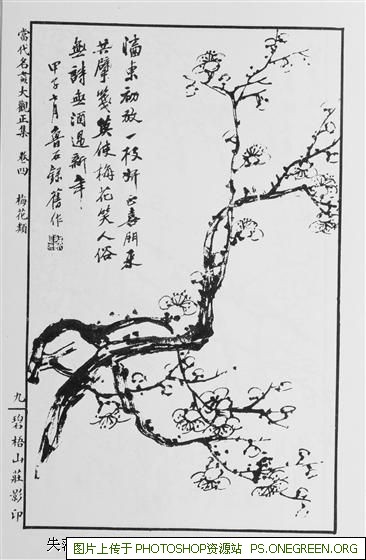 牆東初放一枝妍正喜朋來
共擘箋莫使梅花笑人俗
無詩無酒過新年
甲子七月魯石錄舊作
當代名畫大觀正集 卷四 梅花類
九 碧梧山莊影印
图片上传于 PHOTOSHOP资源站 PS.ONEGREEN.ORG